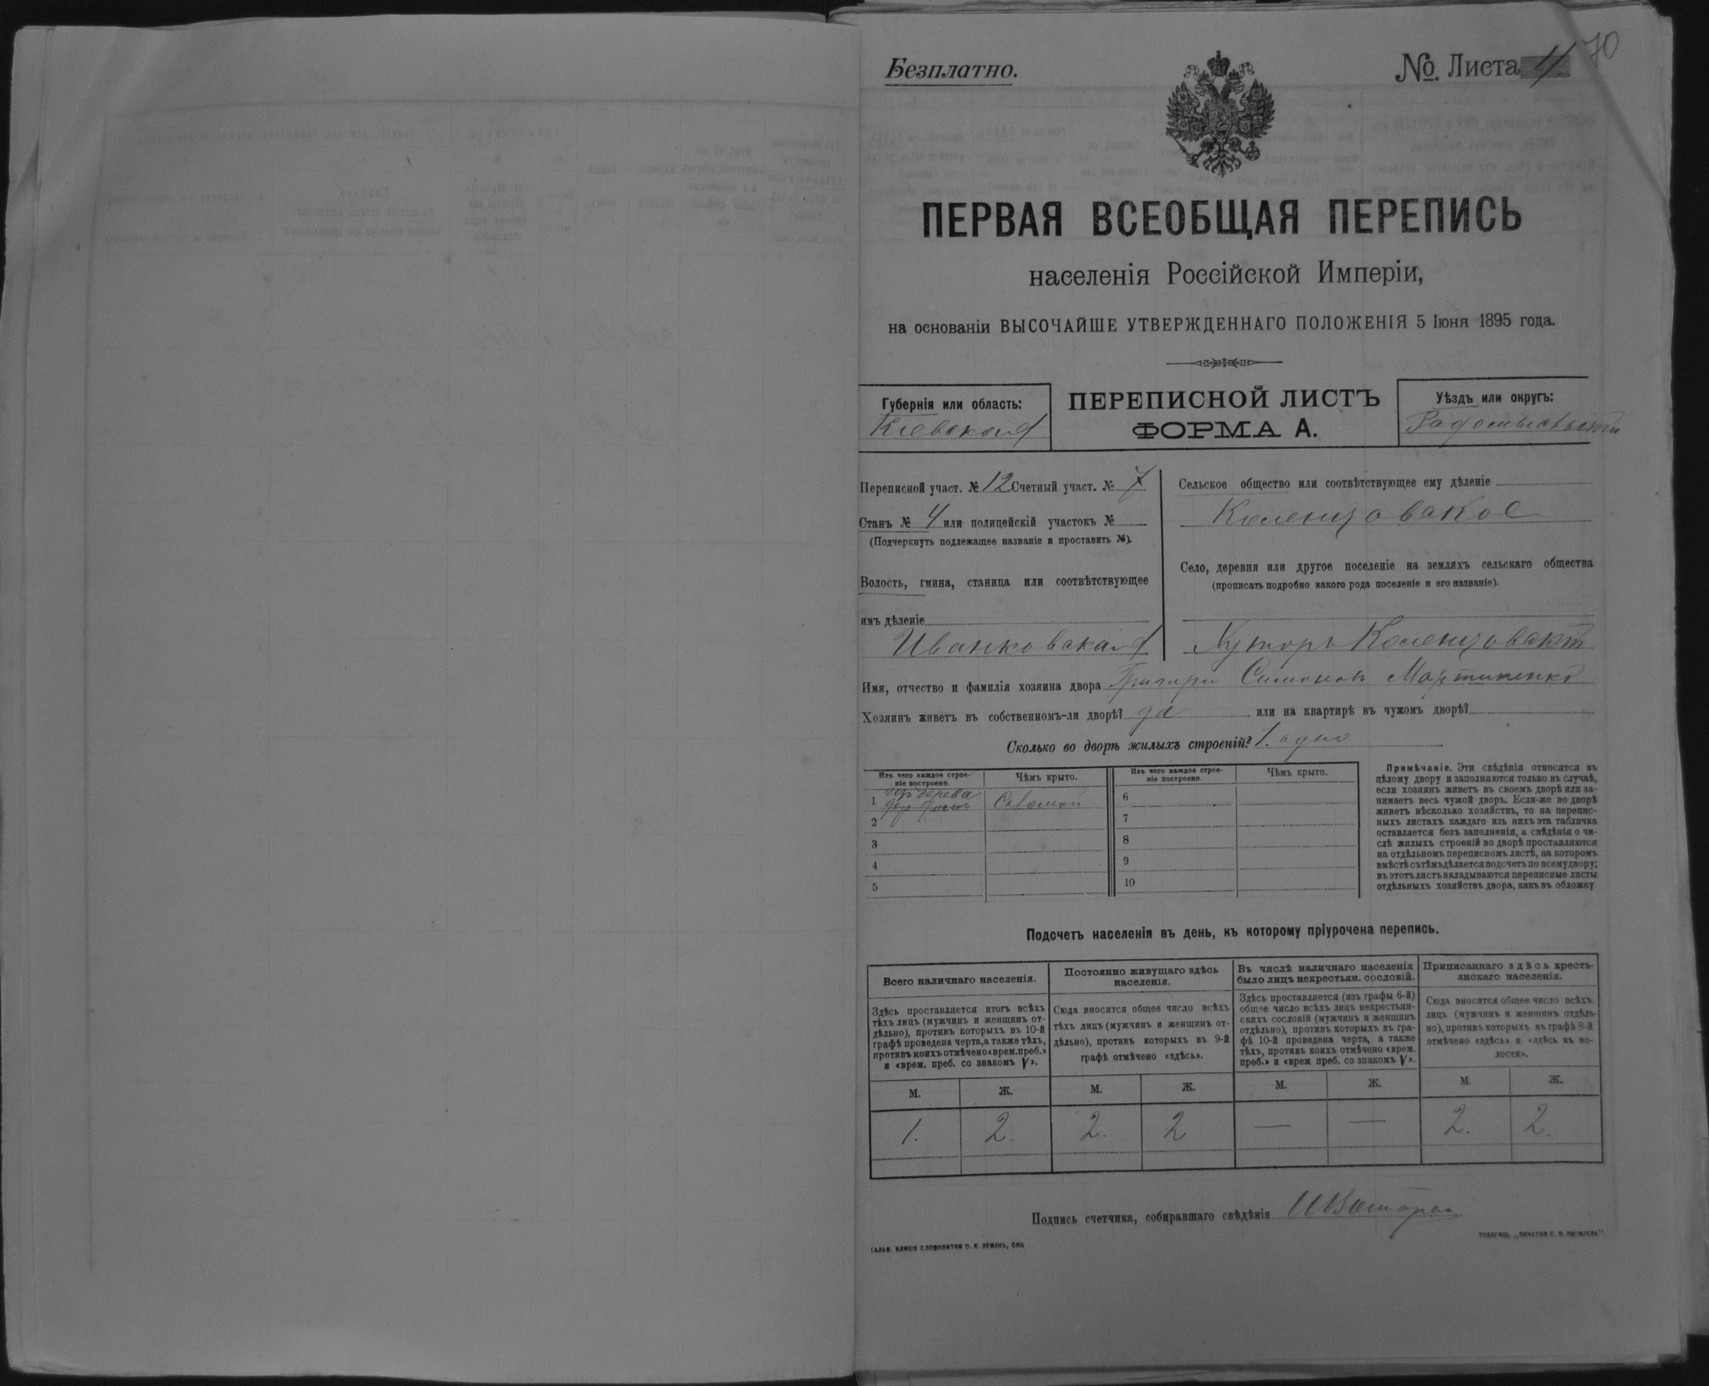 Безплатно.
№ Листа 4
70
ПЕРВАЯ ВСЕОБЩАЯ ПЕРЕПИСЬ
населенія Россійской Имперіи,
на основаніи ВЫСОЧАЙШЕ УТВЕРЖДЕННАГО ПОЛОЖЕНІЯ 5 Іюня 1895 года.
Губернія или область:
Кіевская
ПЕРЕПИСНОЙ ЛИСТЪ
ФОРМА А.
Уѣздъ или округъ:
Переписной участ. № 12 Счетный участ. № 7
Станъ № 4 или полицейскій участокъ №
(Подчеркнуть подлежащее названіе и проставить №).
Волость, гмина, станица или соотвѣтствующее
имъ дѣленіе
Иванковская
Сельское общество или соотвѣтствующее ему дѣленіе
Коленцовское
Село, деревня или другое поселеніе на земляхъ сельскаго общества
(прописать подробно какого рода поселеніе и его названіе).
Хуторъ
Имя, отчество и фамилія хозяина двора Григорій Симоновъ Мартиненко
Хозяинъ живетъ въ собственномъ-ли дворѣ? да или на квартирѣ въ чужомъ дворѣ?
Сколько во дворѣ жилыхъ строеній? 1. одно
Изъ чего каждое строе-
ніе построено.
Чѣмъ крыто.
Изъ чего каждое строе-
ніе построено.
Чѣмъ крыто.
1 изъ дерева Соломой
2
3
4
5
6
7
8
9
10
Примѣчаніе. Эти свѣдѣнія относятся къ
цѣлому двору и заполняются только въ случаѣ,
если хозяинъ живетъ въ своемъ дворѣ или за-
нимаетъ весь чужой дворъ. Если-же во дворѣ
живетъ нѣсколько хозяйствъ, то на перепис-
ныхъ листахъ каждаго изъ нихъ эта табличка
оставляется безъ заполненія, а свѣдѣнія о чи-
слѣ жилыхъ строеній во дворѣ проставляются
на отдѣльномъ переписномъ листѣ, на которомъ
вмѣстѣ съ тѣмъ дѣлается подсчетъ по всему двору;
въ этотъ листъ вкладываются переписные листы
отдѣльныхъ хозяйствъ двора, какъ въ обложку
Подсчетъ населенія въ день, къ которому пріурочена перепись.
Всего наличнаго населенія.
Здѣсь проставляется итогъ всѣхъ
тѣхъ лицъ (мужчинъ и женщинъ от-
дѣльно), противъ которыхъ въ 10-й
графѣ проведена черта, а также тѣхъ,
противъ коихъ отмѣчено «врем. преб.»
и «врем. преб. со знакомъ V».
Постоянно живущаго здѣсь
населенія.
Сюда вносится общее число всѣхъ
тѣхъ лицъ (мужчинъ и женщинъ от-
дѣльно), противъ которыхъ въ 9-й
графѣ отмѣчено «здѣсь».
Въ числѣ наличнаго населенія
было лицъ некрестьян. сословій.
Здѣсь проставляется (изъ графы 6-й)
общее число всѣхъ лицъ некрестьян-
скихъ сословій (мужчинъ и женщинъ
отдѣльно), противъ которыхъ въ гра-
фѣ 10-й проведена черта, а также
тѣхъ, противъ коихъ отмѣчено «врем.
преб.» и «врем преб. со знакомъ V».
Приписаннаго здѣсь кресть-
янскаго населенія.
Сюда вносится общее число всѣхъ
лицъ (мужчинъ и женщинъ отдѣль-
но), противъ которыхъ въ графѣ 8-й
отмѣчено «здѣсь» и «здѣсь къ во-
лости».
М. Ж. М. Ж. М. Ж. М. Ж.
1. 2. 2. 2 — — 2. 2.
Подпись счетчика, собиравшаго свѣдѣнія